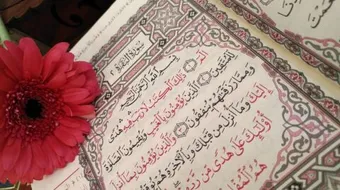 سُورَةُ البَقَرَةِ ٢
بِسْمِ اللَّهِ الرَّحْمَٰنِ الرَّحِيمِ
الٓمٓ ذَٰلِكَ الْكِتَابُ لَا رَيْبَ فِيهِ هُدًى
لِلْمُتَّقِينَ الَّذِينَ يُؤْمِنُونَ بِالْغَيْبِ وَيُقِيمُونَ الصَّلَاةَ
وَمِمَّا رَزَقْنَاهُمْ يُنْفِقُونَ وَالَّذِينَ يُؤْمِنُونَ بِمَا أُنْزِلَ
إِلَيْكَ وَمَا أُنْزِلَ مِنْ قَبْلِكَ وَبِالْآخِرَةِ هُمْ
أُولَٰئِكَ عَلَىٰ هُدًى مِنْ
هُمُ